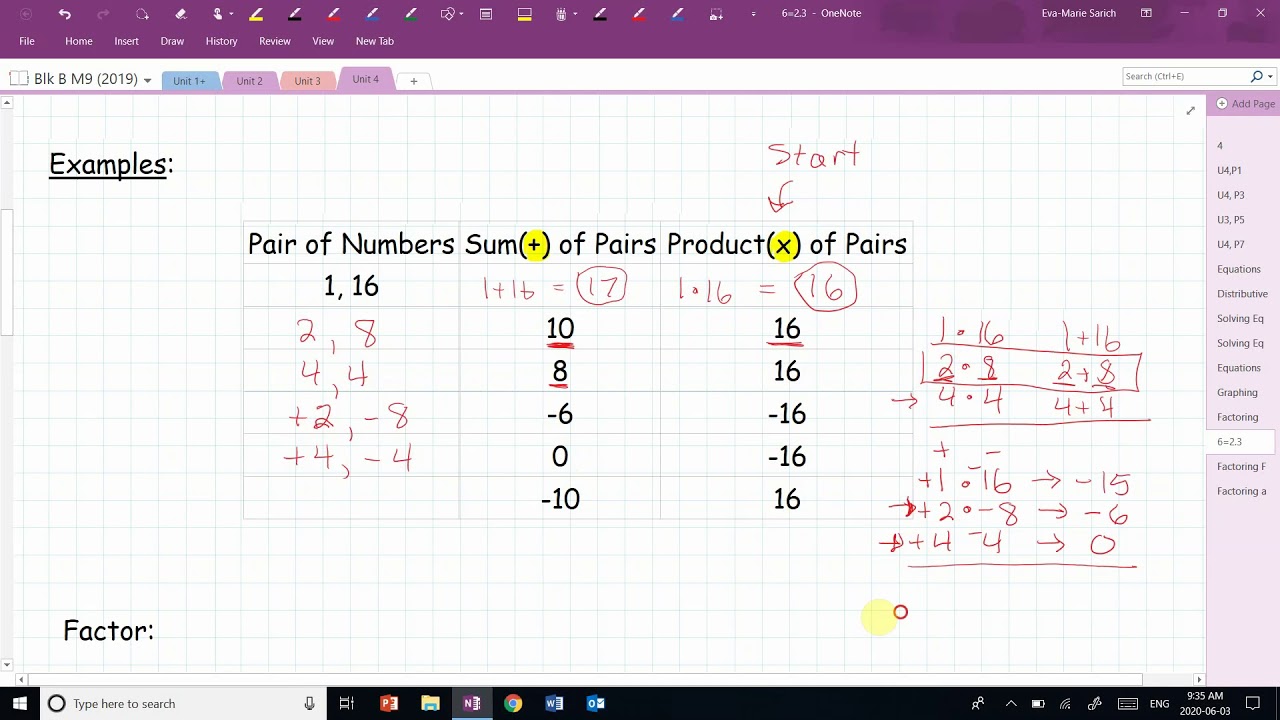 6=2.3 - OneNote
Eva-Marie Sarich
File Home Insert Draw History Review View New Tab
Blk B M9 (2019) Unit 1+ Unit 2 Unit 3 Unit 4 +
Search (Ctrl+E)
Add Page
4
U4,P1
U4, P3
U3, P5
U4, P7
Equations
Distributive
Solving Eq
Solving Eq
Equations
Graphing
Factoring
6=2.3
Factoring F
Factoring a
Examples:
Start
Pair of Numbers Sum(+) of Pairs Product(x) of Pairs
1, 16 1+16 = 17 1•16 = 16
2, 8 10 16
4, 4 8 16
+2, -8 -6 -16
+4, -4 0 -16
-10 16
1•16 1+16
2•8 2+8
→ 4•4 4+4
+ -
+1•-16 → -15
→ +2•-8 → -6
→ +4 -4 → 0
Factor:
Type here to search
ENG
9:35 AM
2020-06-03